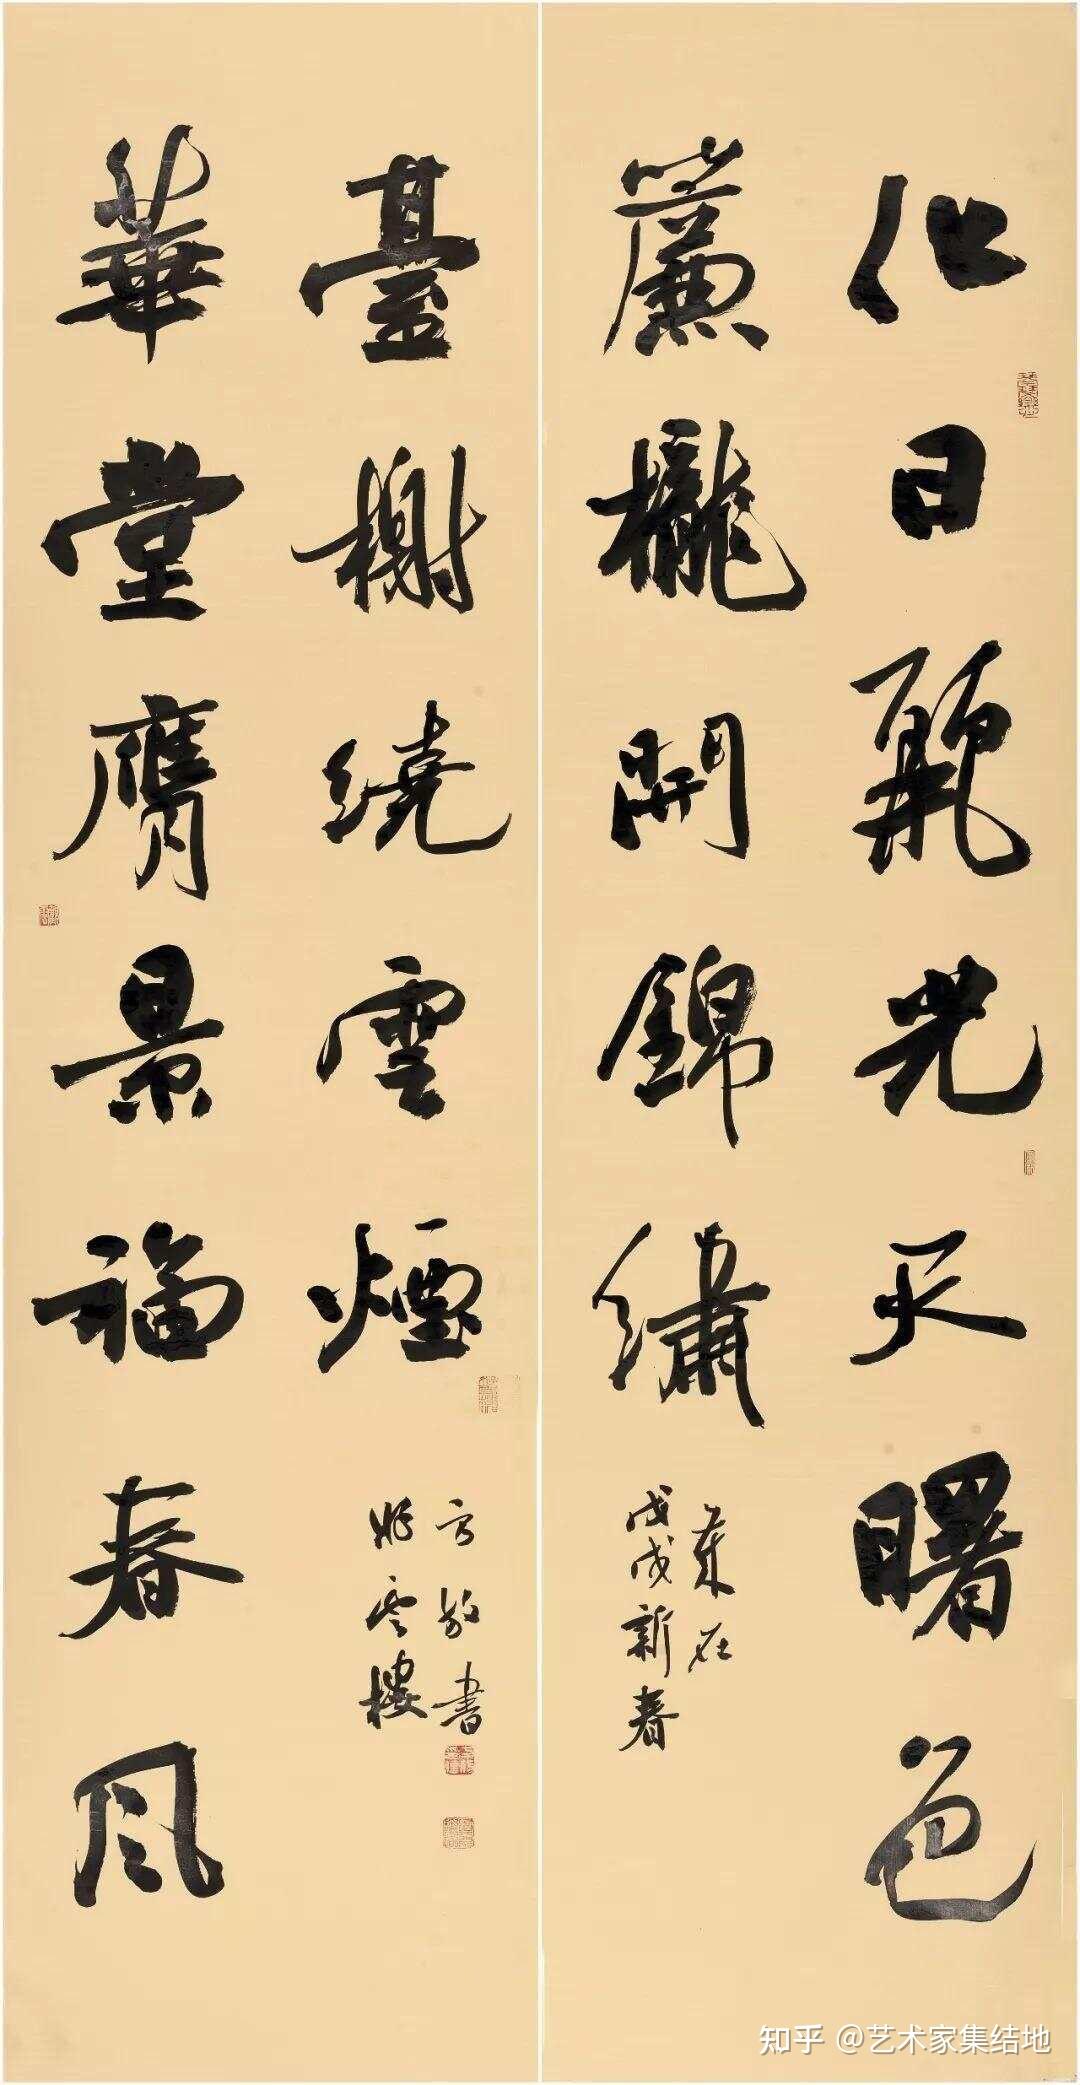 化日麗光天曙色
簾櫳開錦繡
歲在
戊戌新春
華堂膺景福春風
臺榭繞雲煙
書
雲樓
知乎 @艺术家集结地